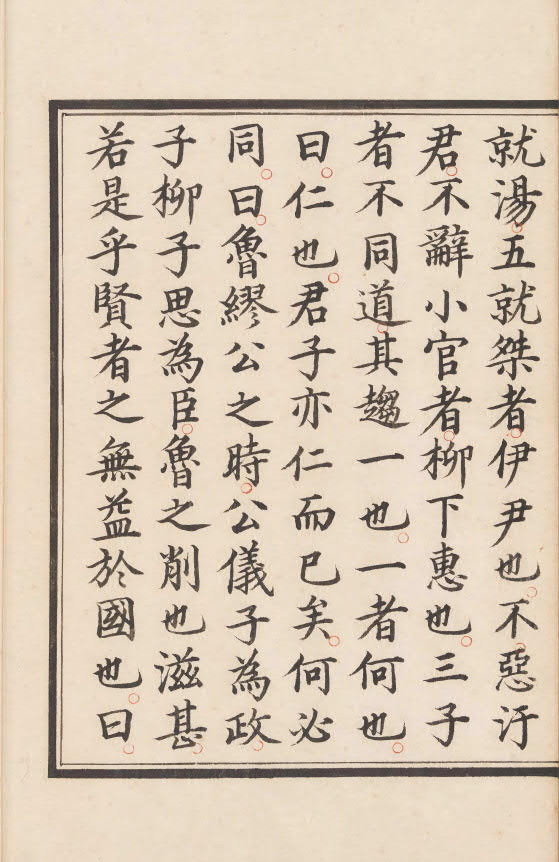 就湯五就桀者伊尹也不惡汙
君不辭小官者柳下惠也三子
者不同道其趨一也一者何也
曰仁也君子亦仁而已矣何必
同曰魯繆公之時公儀子為政
子柳子思為臣魯之削也滋甚
若是乎賢者之無益於國也曰